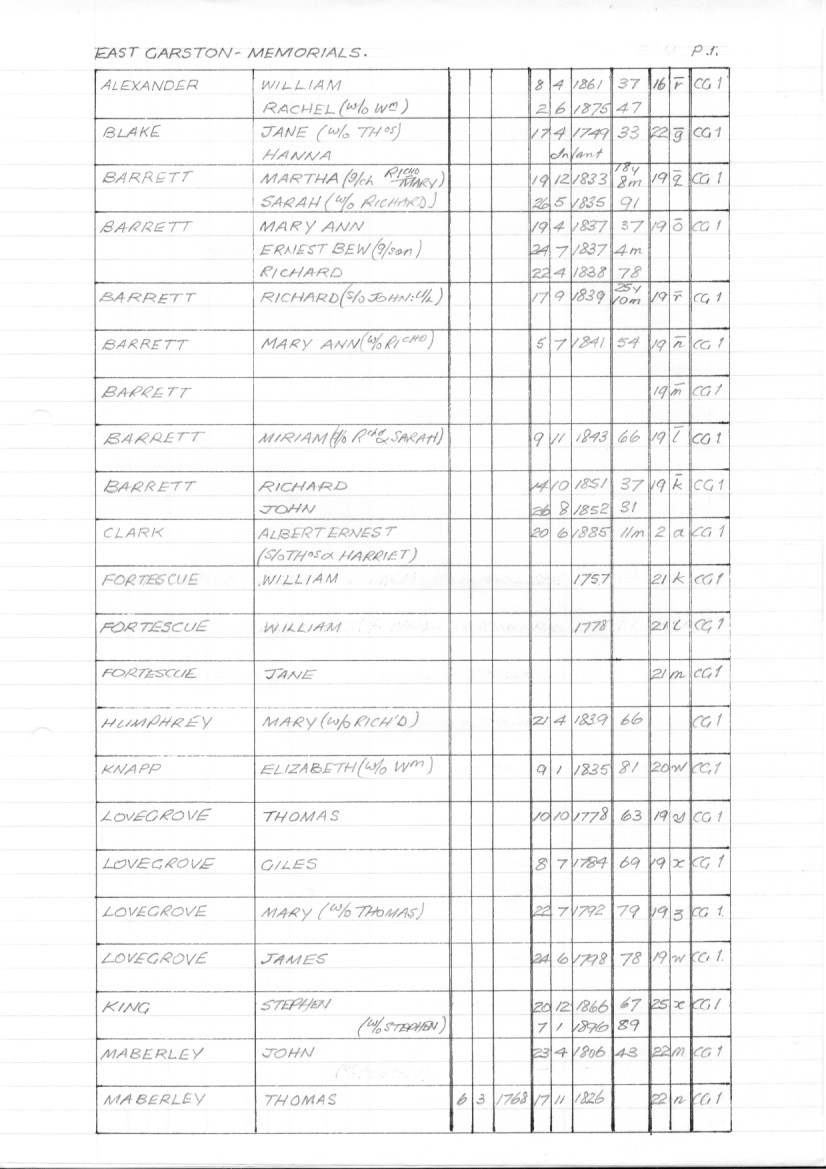 EAST GARSTON - MEMORIALS. P.1.
ALEXANDER WILLIAM 8 4 1861 37 16 r̄ CG1
RACHEL (w/o Wm) 2 6 1875 47
BLAKE JANE (w/o THos) 17 4 1749 33 22 ḡ CG1
HANNA Infant
BARRETT MARTHA (g/ch RICHD MARY) 19 12 1833 18y 8m 19 q̄ CG1
SARAH (w/o RICHARD) 26 5 1835 91
BARRETT MARY ANN 19 4 1837 37 19 ō CG1
ERNEST BEW (g/son) 24 7 1837 4m
RICHARD 22 4 1838 78
BARRETT RICHARD (s/o JOHN: U/L) 17 9 1839 25y 10m 19 r̄ CG1
BARRETT MARY ANN (w/o RICHD) 5 7 1841 54 19 n̄ CG1
BARRETT 19 m̄ CG1
BARRETT MIRIAM (d/o Richd & SARAH) 9 11 1843 66 19 l̄ CG1
BARRETT RICHARD 14 10 1851 37 19 k̄ CG1
JOHN 26 8 1852 31
CLARK ALBERT ERNEST 20 6 1885 11m 2 a CG1
(S/o THos & HARRIET)
FORTESCUE WILLIAM 1757 21 k CG1
FORTESCUE WILLIAM 1778 21 l CG1
FORTESCUE JANE 21 m CG1
HUMPHREY MARY (w/o RICH'D) 21 4 1839 66 CG1
KNAPP ELIZABETH (w/o Wm) 9 1 1835 81 20 w CG1
LOVEGROVE THOMAS 10 10 1778 63 19 y CG1
LOVEGROVE GILES 8 7 1784 69 19 x CG1
LOVEGROVE MARY (w/o THOMAS) 22 7 1792 79 19 z CG1.
LOVEGROVE JAMES 24 6 1798 78 19 w CG1.
KING STEPHEN 20 12 1866 67 25 x CG1
(w/o STEPHEN) 7 1 1896 89
MABERLEY JOHN 23 4 1806 43 22 m CG1
MABERLEY THOMAS 6 3 1768 17 11 1826 22 n CG1